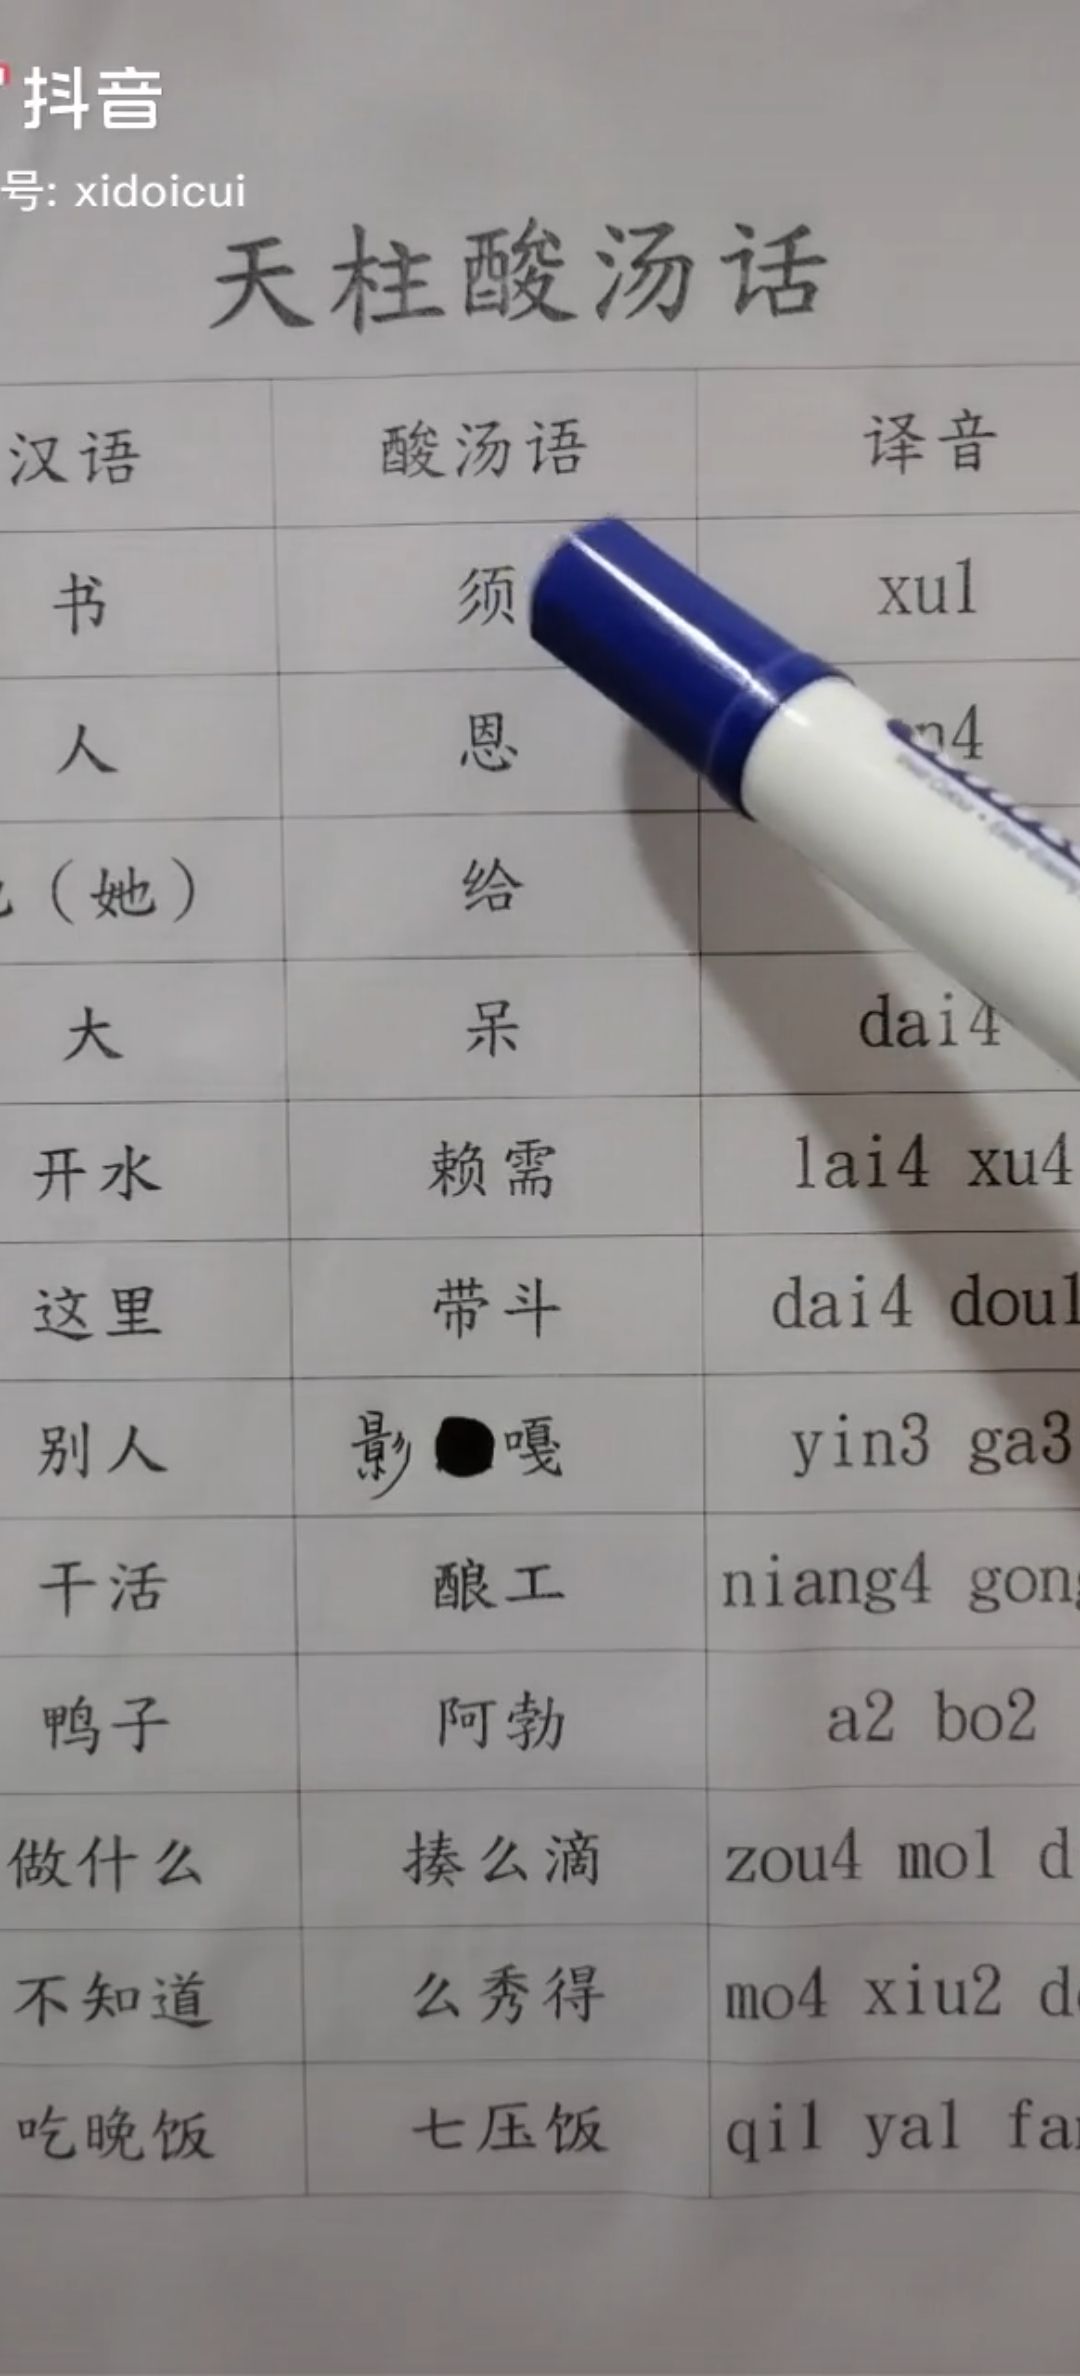 抖音
号: xidoicui
天柱酸汤话
汉语 酸汤语 译音
书 须 xu1
人 恩 n4
（她） 给
大 呆 dai4
开水 赖需 lai4 xu4
这里 带斗 dai4 dou1
别人 影 嘎 yin3 ga3
干活 酿工 niang4 gong
鸭子 阿勃 a2 bo2
做什么 揍么滴 zou4 mo1 d
不知道 么秀得 mo4 xiu2 d
吃晚饭 七压饭 qi1 ya1 fa